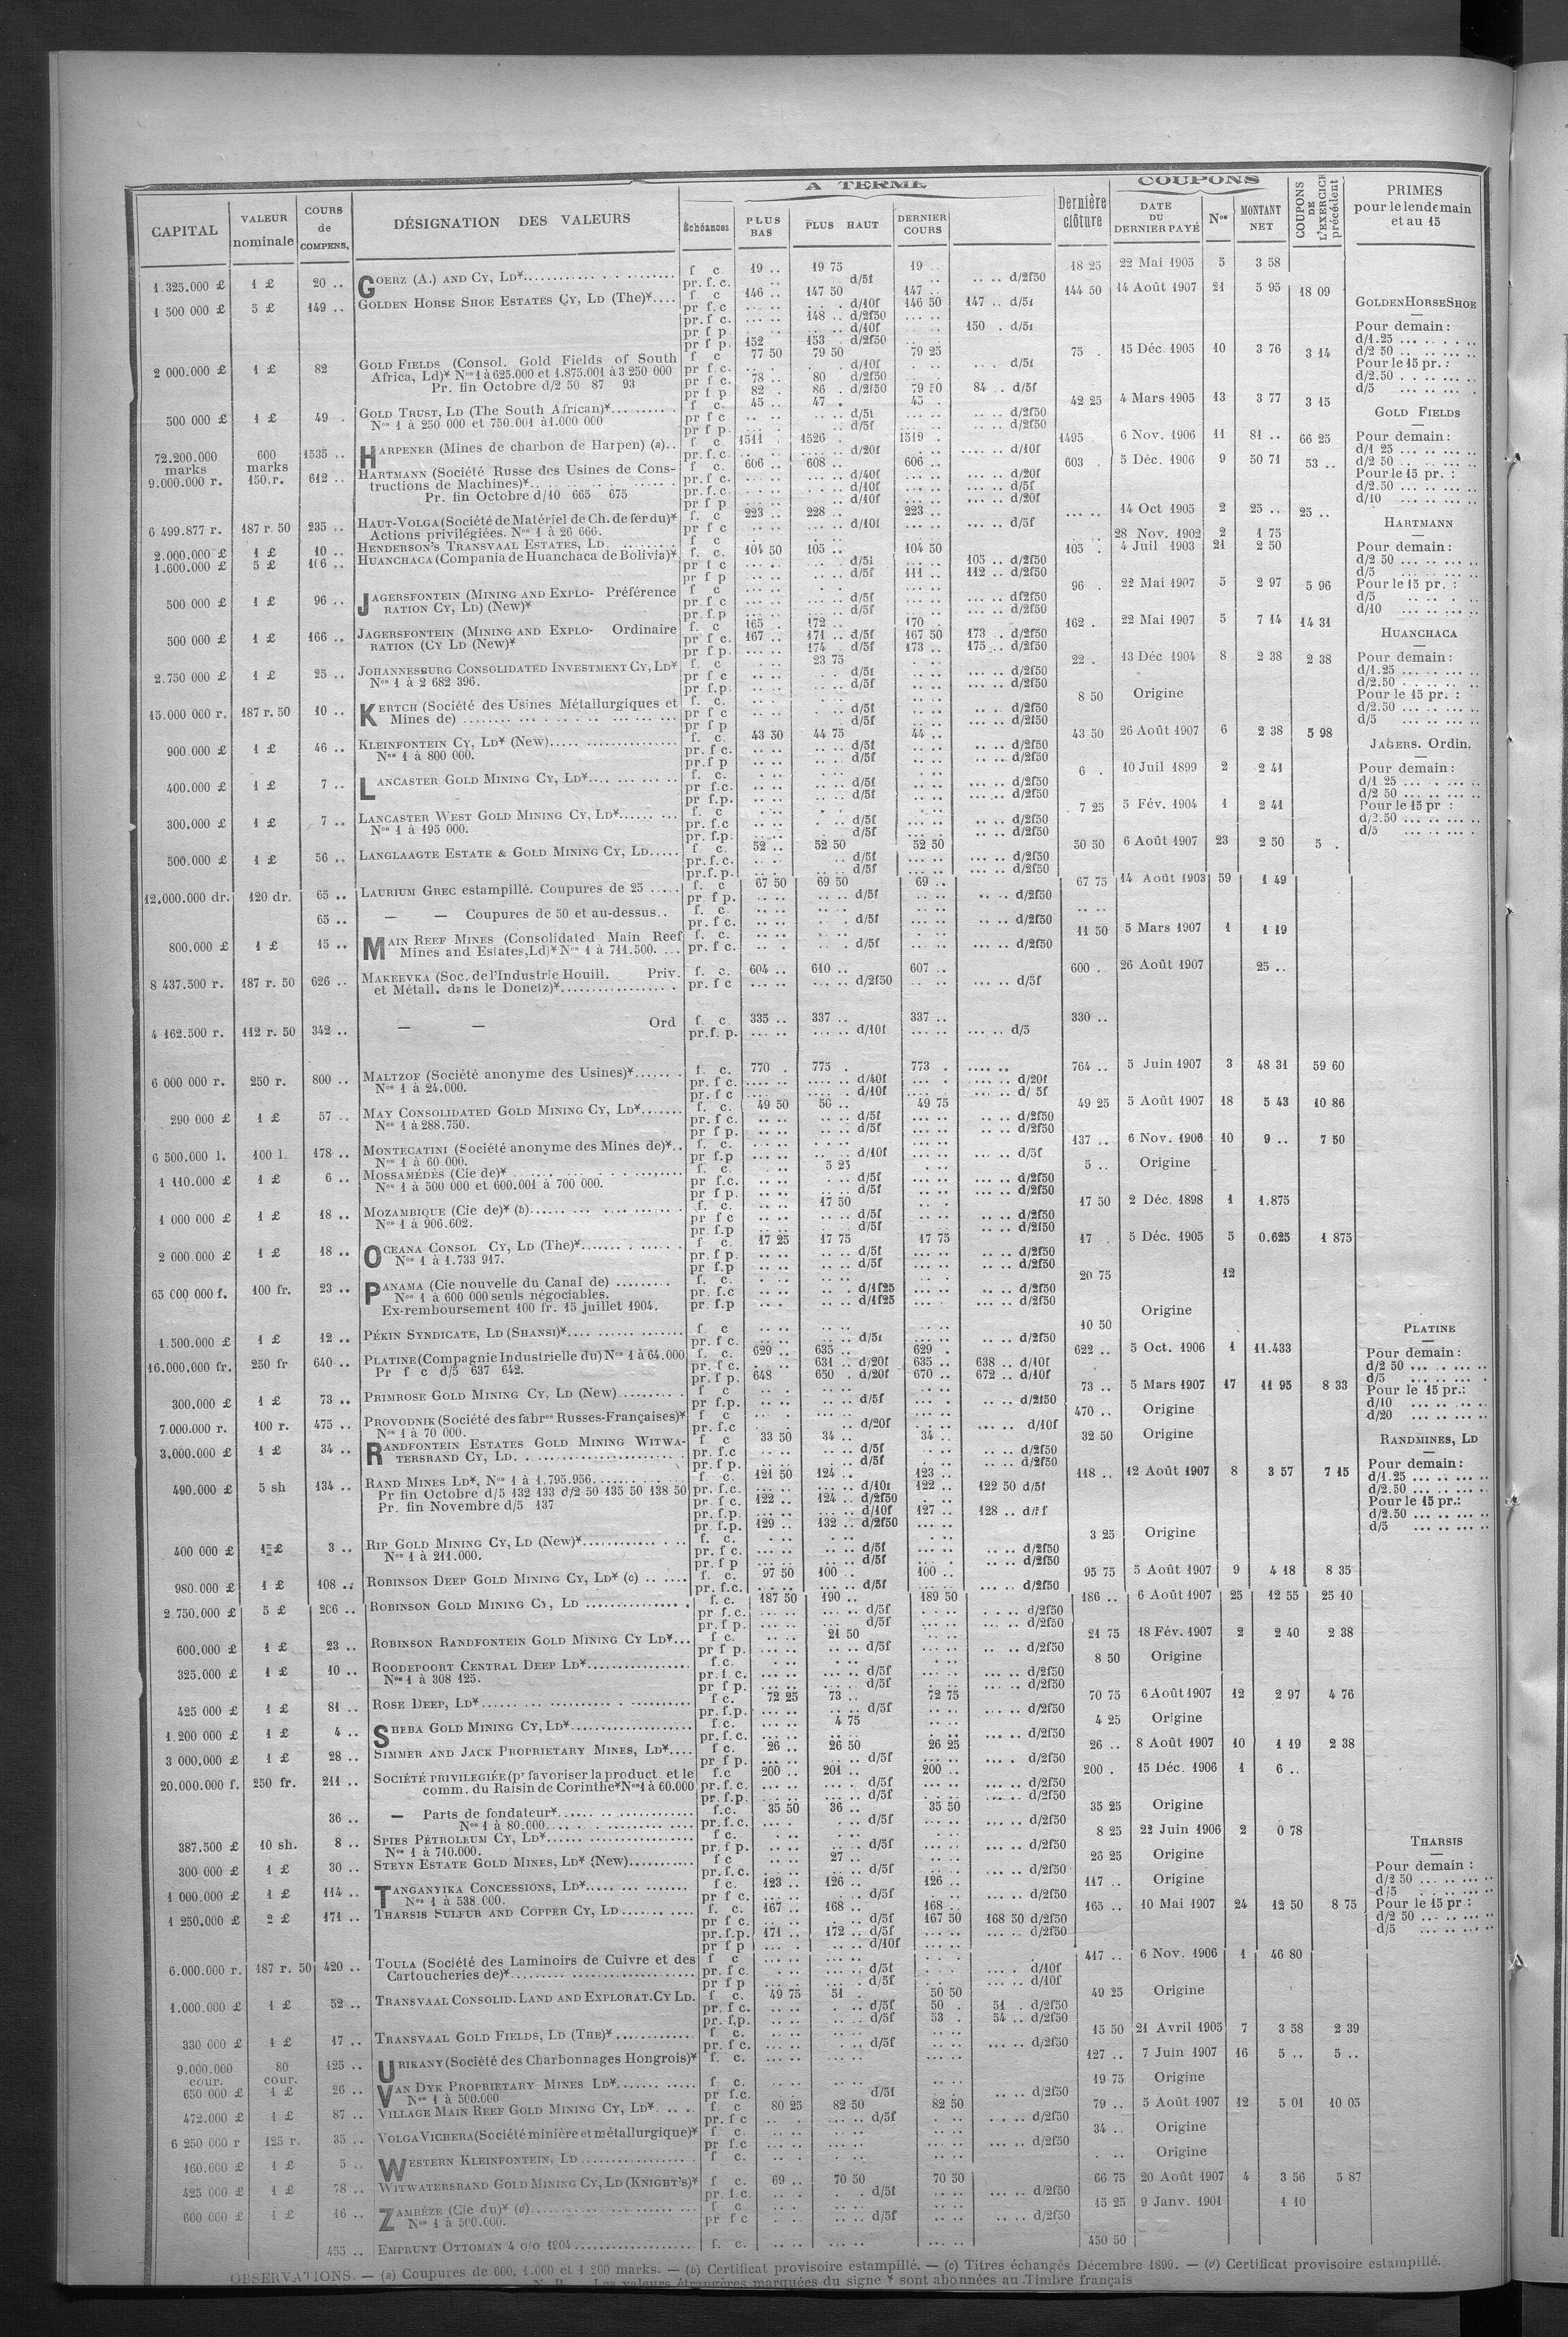 A TERME
COUPONS
CAPITAL
VALEUR nominale
COURS de COMPENS.
DÉSIGNATION DES VALEURS
Échéances
PLUS BAS
PLUS HAUT
DERNIER COURS
Dernière clôture
DATE DU DERNIER PAYÉ
Nos
MONTANT NET
COUPONS DE L'EXERCICE précédent
PRIMES pour le lendemain et au 15
1.325.000 £ 1 £ 20 .. GOERZ (A.) AND CY, LD* f c 19 .. 19 75 19 .. 18 25 22 Mai 1905 5 3 58
pr. f. c. d/5f d/2f50
1 500 000 £ 5 £ 149 .. GOLDEN HORSE SHOE ESTATES CY, LD (The)* f c 146 .. 147 50 147 .. 144 50 14 Août 1907 21 5 95 18 09
pr f. c d/10f 146 50 147 .. d/5f
pr f c. 148 .. d/2f50
pr f p. d/10f 150 . d/5f
pr f p. 152 153 . d/2f50
2 000.000 £ 1 £ 82 GOLD FIELDS (Consol. Gold Fields of South f c 77 50 79 50 79 25 75 . 15 Déc. 1905 10 3 76 3 14
Africa, Ld)* Nos 1 à 625.000 et 1.875.001 à 3 250 000 pr f. c. d/10f d/5f
Pr. fin Octobre d/2 50 87 93 pr f c. 78 .. 80 d/2f50
pr f p 82 . 86 . d/2f50 79 50 84 .. d/5f
500 000 £ 1 £ 49 . GOLD TRUST, LD (The South African)* f c. 45 .. 47 . 45 . 42 25 4 Mars 1905 13 3 77 3 15
Nos 1 à 250 000 et 750.001 à 1.000 000 pr f c d/5f d/2f50
pr f p. d/5f d/2f50
72.200.000 marks 600 marks 1535 .. HARPENER (Mines de charbon de Harpen) (a) f c. 1511 1526 . 1519 . 1495 6 Nov. 1906 11 81 .. 66 25
pr. f. c. d/20f d/10f
9.000.000 r. 150.r. 612 .. HARTMANN (Société Russe des Usines de Cons- f c. 606 .. 608 .. 606 .. 603 . 5 Déc. 1906 9 50 71 53 ..
tructions de Machines)* pr f. c. d/40f d/20f
Pr. fin Octobre d/10 665 675 pr. f. c. d/10f d/5f
pr f p d/10f d/20f
6 499.877 r. 187 r. 50 235 .. HAUT-VOLGA (Société de Matériel de Ch. de fer du)* f. c 223 .. 228 .. 223 .. 14 Oct 1905 2 25 .. 25 ..
Actions privilégiées. Nos 1 à 26 666. pr f c d/10f d/5f
2.000.000 £ 1 £ 10 .. HENDERSON'S TRANSVAAL ESTATES, LD. f c 28 Nov. 1902 2 1 75
1.600.000 £ 5 £ 106 .. HUANCHACA (Compania de Huanchaca de Bolivia)* f. c. 104 50 105 .. 104 50 105 . 4 Juil 1903 21 2 50
pr f c d/5f 105 .. d/2f50
pr f p d/5f 111 .. 112 .. d/2f50
500 000 £ 1 £ 96 .. JAGERSFONTEIN (MINING AND EXPLO- Préférence f c 96 . 22 Mai 1907 5 2 97 5 96
RATION CY, LD) (New)* pr f c d/5f d/2f50
pr. f.p d/5f d/2f50
500 000 £ 1 £ 166 .. JAGERSFONTEIN (MINING AND EXPLO- Ordinaire f. c 165 .. 172 .. 170 . 162 . 22 Mai 1907 5 7 14 14 31
RATION (CY LD (New)* pr f c. 167 .. 171 .. d/5f 167 50 173 . d/2f50
pr f p. 174 . d/5f 173 .. 175 .. d/2f50
2.750 000 £ 1 £ 25 .. JOHANNESBURG CONSOLIDATED INVESTMENT CY, LD* f. c 23 75 22 . 13 Déc 1904 8 2 38 2 38
Nos 1 à 2 682 396. pr f c d/5f d/2f50
pr f.p. d/5f d/2f50
15.000 000 r. 187 r. 50 10 .. KERTCH (Société des Usines Métallurgiques et f. c. 8 50 Origine
Mines de) pr f c d/5f d/2f50
pr f p d/5f d/2f50
900.000 £ 1 £ 46 .. KLEINFONTEIN CY, LD* (New) f. c. 43 50 44 75 44 .. 43 50 26 Août 1907 6 2 38 5 98
Nos 1 à 800 000. pr. f c. d/5f d/2f50
pr. f p d/5f d/2f50
400.000 £ 1 £ 7 .. LANCASTER GOLD MINING CY, LD* f. c. 6 . 10 Juil 1899 2 2 41
pr f.c. d/5f d/2f50
pr f.p. d/5f d/2f50
300.000 £ 1 £ 7 .. LANCASTER WEST GOLD MINING CY, LD* f. c 7 25 5 Fév. 1904 1 2 41
Nos 1 à 195 000. pr. f.c d/5f d/2f50
pr f.p. d/5f d/2f50
500.000 £ 1 £ 56 .. LANGLAAGTE ESTATE & GOLD MINING CY, LD f c. 52 .. 52 50 52 50 50 50 6 Août 1907 23 2 50 5 .
pr. f. c. d/5f d/2f50
pr. f. p. d/5f d/2f50
12.000.000 dr. 120 dr. 65 .. LAURIUM GREC estampillé. Coupures de 25 f. c 67 50 69 50 69 .. 67 75 14 Août 1903 59 1 49
pr f p. d/5f d/2f50
65 .. — — Coupures de 50 et au-dessus f. c.
pr. f c. d/5f d/2f50
800.000 £ 1 £ 15 .. MAIN REEF MINES (Consolidated Main Reef f. c. 11 50 5 Mars 1907 1 1 19
Mines and Estates, Ld)* Nos 1 à 711.500. pr. f c. d/5f d/2f50
8 437.500 r. 187 r. 50 626 .. MAKEEVKA (Soc. de l'Industrie Houill. Priv. f. c. 604 .. 610 .. 607 .. 600 . 26 Août 1907 25 ..
et Métall. dans le Donetz)* pr. f c d/2f50 d/5f
4 162.500 r. 112 r. 50 342 .. — — Ord f. c. 335 .. 337 .. 337 .. 330 ..
pr. f. p. d/10f d/5
6 000 000 r. 250 r. 800 .. MALTZOF (Société anonyme des Usines)* f. c. 770 . 775 . 773 . 764 .. 5 Juin 1907 3 48 31 59 60
Nos 1 à 24.000. pr. f c. d/40f d/20f
pr. f c d/10f d/ 5f
290 000 £ 1 £ 57 .. MAY CONSOLIDATED GOLD MINING CY, LD* f. c. 49 50 56 .. 49 75 49 25 5 Août 1907 18 5 43 10 86
Nos 1 à 288.750. pr. f c. d/5f d/2f50
pr f p. d/5f d/2f50
6 500.000 l. 100 l. 178 .. MONTECATINI (Société anonyme des Mines de)* f. c. 137 .. 6 Nov. 1906 10 9 .. 7 50
Nos 1 à 60.000. pr f.p d/10f d/5f
1 110.000 £ 1 £ 6 .. MOSSAMÉDÈS (Cie de)* f. c. 5 25 5 .. Origine
Nos 1 à 500 000 et 600.001 à 700 000. pr f.c. d/5f d/2f50
pr f p. d/5f d/2f50
1 000 000 £ 1 £ 18 .. MOZAMBIQUE (Cie de)* (b) f. c. 17 50 17 50 2 Déc. 1898 1 1.875
Nos 1 à 906.602. pr f c d/5f d/2f50
pr. f.p d/5f d/2f50
2 000.000 £ 1 £ 18 .. OCEANA CONSOL CY, LD (The)* f c. 17 25 17 75 17 75 17 . 5 Déc. 1905 5 0.625 1 875
Nos 1 à 1.733 917. pr. f p. d/5f d/2f50
pr. f.p d/5f d/2f50
65 000 000 f. 100 fr. 23 .. PANAMA (Cie nouvelle du Canal de) f. c. 20 75 12
Nos 1 à 600 000 seuls négociables. pr. f.c d/1f25 d/2f50
Ex-remboursement 100 fr. 15 juillet 1904. pr. f.p d/1f25 d/2f50
Origine
1.500.000 £ 1 £ 12 .. PÉKIN SYNDICATE, LD (SHANSI)* f c 10 50
pr. f c. d/5f d/2f50
16.000.000 fr. 250 fr 640 .. PLATINE (Compagnie Industrielle du) Nos 1 à 64.000 f. c. 629 .. 635 .. 629 . 622 .. 5 Oct. 1906 1 11.433
Pr f c d/5 637 642. pr. f c. 631 .. d/20f 635 .. 638 .. d/10f
pr. f p. 648 650 . d/20f 670 .. 672 .. d/10f
300.000 £ 1 £ 73 .. PRIMROSE GOLD MINING CY, LD (New) f c 73 .. 5 Mars 1907 17 11 95 8 33
pr f.p. d/5f d/2f50
7.000.000 r. 100 r. 475 .. PROVODNIK (Société des fabres Russes-Françaises)* f c 470 .. Origine
Nos 1 à 70 000. pr. f.c d/20f d/10f
3.000.000 £ 1 £ 34 .. RANDFONTEIN ESTATES GOLD MINING WITWA- f c 33 50 34 .. 34 .. 32 50 Origine
TERSRAND CY, LD. pr. f.c d/5f d/2f50
pr. f p. d/5f d/2f50
490.000 £ 5 sh 134 .. RAND MINES LD*, Nos 1 à 1.795.956 f. c. 121 50 124 .. 123 .. 118 .. 12 Août 1907 8 3 57 7 15
Pr fin Octobre d/5 132 133 d/2 50 135 50 138 50 pr. f.c. d/10f 122 .. 122 50 d/5f
Pr. fin Novembre d/5 137 pr. f c. 122 .. 124 .. d/2f50
pr. f.p. d/10f 127 .. 128 ..
pr. f.p. 129 .. 132 .. d/2f50
400 000 £ 1 £ 3 .. RIP GOLD MINING CY, LD (New)* f. c. 3 25 Origine
Nos 1 à 211.000. pr. f c. d/5f d/2f50
pr. f p d/5f d/2f50
980.000 £ 1 £ 108 .. ROBINSON DEEP GOLD MINING CY, LD* (c) f. c. 97 50 100 .. 100 .. 95 75 5 Août 1907 9 4 18 8 35
pr. f.c. d/5f d/2f50
2.750.000 £ 5 £ 206 .. ROBINSON GOLD MINING CY, LD f. c. 187 50 190 .. 189 50 186 .. 6 Août 1907 25 12 55 25 10
pr f.c. d/5f d/2f50
pr. f p. d/5f d/2f50
600.000 £ 1 £ 23 .. ROBINSON RANDFONTEIN GOLD MINING CY LD* f c. 21 50 21 75 18 Fév. 1907 2 2 40 2 38
pr f p. d/5f d/2f50
325.000 £ 1 £ 10 .. ROODEPOORT CENTRAL DEEP LD* f.c. 8 50 Origine
Nos 1 à 308 125. pr. f. c. d/5f d/2f50
pr f p. d/5f d/2f50
425 000 £ 1 £ 81 .. ROSE DEEP, LD* f c. 72 25 73 .. 72 75 70 75 6 Août 1907 12 2 97 4 76
pr. f.p. d/5f d/2f50
1.200 000 £ 1 £ 4 .. SHEBA GOLD MINING CY, LD* f.c. 4 75 4 25 Origine
pr. f.c. d/2f50
3 000.000 £ 1 £ 28 .. SIMMER AND JACK PROPRIETARY MINES, LD* f c. 26 .. 26 50 26 25 26 .. 8 Août 1907 10 1 19 2 38
pr f p. d/5f d/2f50
20.000.000 f. 250 fr. 211 .. SOCIÉTÉ PRIVILEGIÉE (pr favoriser la product. et le f.c 200 .. 201 .. 200 .. 200 . 15 Déc. 1906 1 6 ..
comm. du Raisin de Corinthe* Nos 1 à 60.000 pr. f. c. d/5f d/2f50
pr. f.p. d/5f d/2f50
36 .. — Parts de fondateur* f.c. 35 50 36 .. 35 50 35 25 Origine
Nos 1 à 80.000 pr. f.c. d/5f d/2f50
387.500 £ 10 sh. 8 .. SPIES PETROLEUM CY, LD* f c. 8 25 22 Juin 1906 2 0 78
Nos 1 à 710.000. pr. f p. d/5f d/2f50
300 000 £ 1 £ 30 .. STEYN ESTATE GOLD MINES, LD* (New) f c 27 .. 26 25 Origine
pr. f.c. d/5f d/2f50
1 000.000 £ 1 £ 114 .. TANGANYIKA CONCESSIONS, LD* f c. 123 .. 126 .. 126 .. 117 .. Origine
Nos 1 à 538.000. pr f c. d/5f d/2f50
1 250.000 £ 2 £ 171 .. THARSIS SULFUR AND COPPER CY, LD f. c. 167 .. 168 .. 168 .. 165 .. 10 Mai 1907 24 12 50 8 75
pr f c. d/5f 167 50 168 50 d/2f50
pr. f.p. 171 .. 172 .. d/5f d/2f50
pr f p d/10f
6.000.000 r. 187 r. 50 420 .. TOULA (Société des Laminoirs de Cuivre et des f c 417 .. 6 Nov. 1906 1 46 80
Cartoucheries de)* pr. f c. d/5f d/10f
pr f p d/5f d/10f
1.000.000 £ 1 £ 52 .. TRANSVAAL CONSOLID. LAND AND EXPLORAT. CY LD. f c. 49 75 51 . 50 50 49 25 Origine
pr. f c. d/5f 50 . 51 . d/2f50
pr. f.p. d/5f 53 . 54 .. d/2f50
330 000 £ 1 £ 17 .. TRANSVAAL GOLD FIELDS, LD (THE)* f c. 15 50 21 Avril 1905 7 3 58 2 39
pr. f c. d/5f d/2f50
9.000.000 cour. 80 cour. 125 .. URIKANY (Société des Charbonnages Hongrois)* f. c. 127 .. 7 Juin 1907 16 5 .. 5 ..
650 000 £ 1 £ 26 .. VAN DYK PROPRIETARY MINES LD* f c. 19 75 Origine
Nos 1 à 500.000 pr f.c. d/5f d/2f50
472.000 £ 1 £ 87 .. VILLAGE MAIN REEF GOLD MINING CY, LD* f c 80 25 82 50 82 50 79 .. 5 Août 1907 12 5 01 10 05
pr. f c d/5f d/2f50
6 250 000 r 125 r. 35 .. VOLGA VICHERA (Société minière et métallurgique)* f c. 34 .. Origine
pr f.c d/2f50
160.000 £ 1 £ 5 .. WESTERN KLEINFONTEIN, LD f c. Origine
425 000 £ 1 £ 78 .. WITWATERSRAND GOLD MINING CY, LD (KNIGHT'S)* f c. 69 .. 70 50 70 50 66 75 20 Août 1907 4 3 56 5 87
pr. f.c. d/5f d/2f50
600 000 £ 1 £ 16 .. ZAMBÈZE (Cie du)* (d) f c 15 25 9 Janv. 1901 1 10
Nos 1 à 500.000. pr f c d/5f d/2f50
455 .. EMPRUNT OTTOMAN 4 o/o 1904 f. c. 450 50
GOLDEN HORSE SHOE
Pour demain :
d/1.25
d/2 50
Pour le 15 pr. :
d/2.50
d/5
GOLD FIELDS
Pour demain :
d/1 25
d/2 50
Pour le 15 pr. :
d/2.50
d/10
HARTMANN
Pour demain :
d/2 50
d/5
Pour le 15 pr. :
d/5
d/10
HUANCHACA
Pour demain :
d/1.25
d/2.50
Pour le 15 pr. :
d/2.50
d/5
JAGERS. Ordin.
Pour demain :
d/1 25
d/2 50
Pour le 15 pr :
d/2.50
d/5
PLATINE
Pour demain :
d/2 50
d/5
Pour le 15 pr.:
d/10
d/20
RANDMINES, LD
Pour demain :
d/1.25
d/2.50
Pour le 15 pr.:
d/2.50
d/5
THARSIS
Pour demain :
d/2 50
d/5
Pour le 15 pr :
d/2 50
d/5
OBSERVATIONS. — (a) Coupures de 600, 1.000 et 1 200 marks. — (b) Certificat provisoire estampillé. — (c) Titres échangés Décembre 1899. — (d) Certificat provisoire estampillé.
N. B. — Les valeurs étrangères marquées du signe * sont abonnées au Timbre français